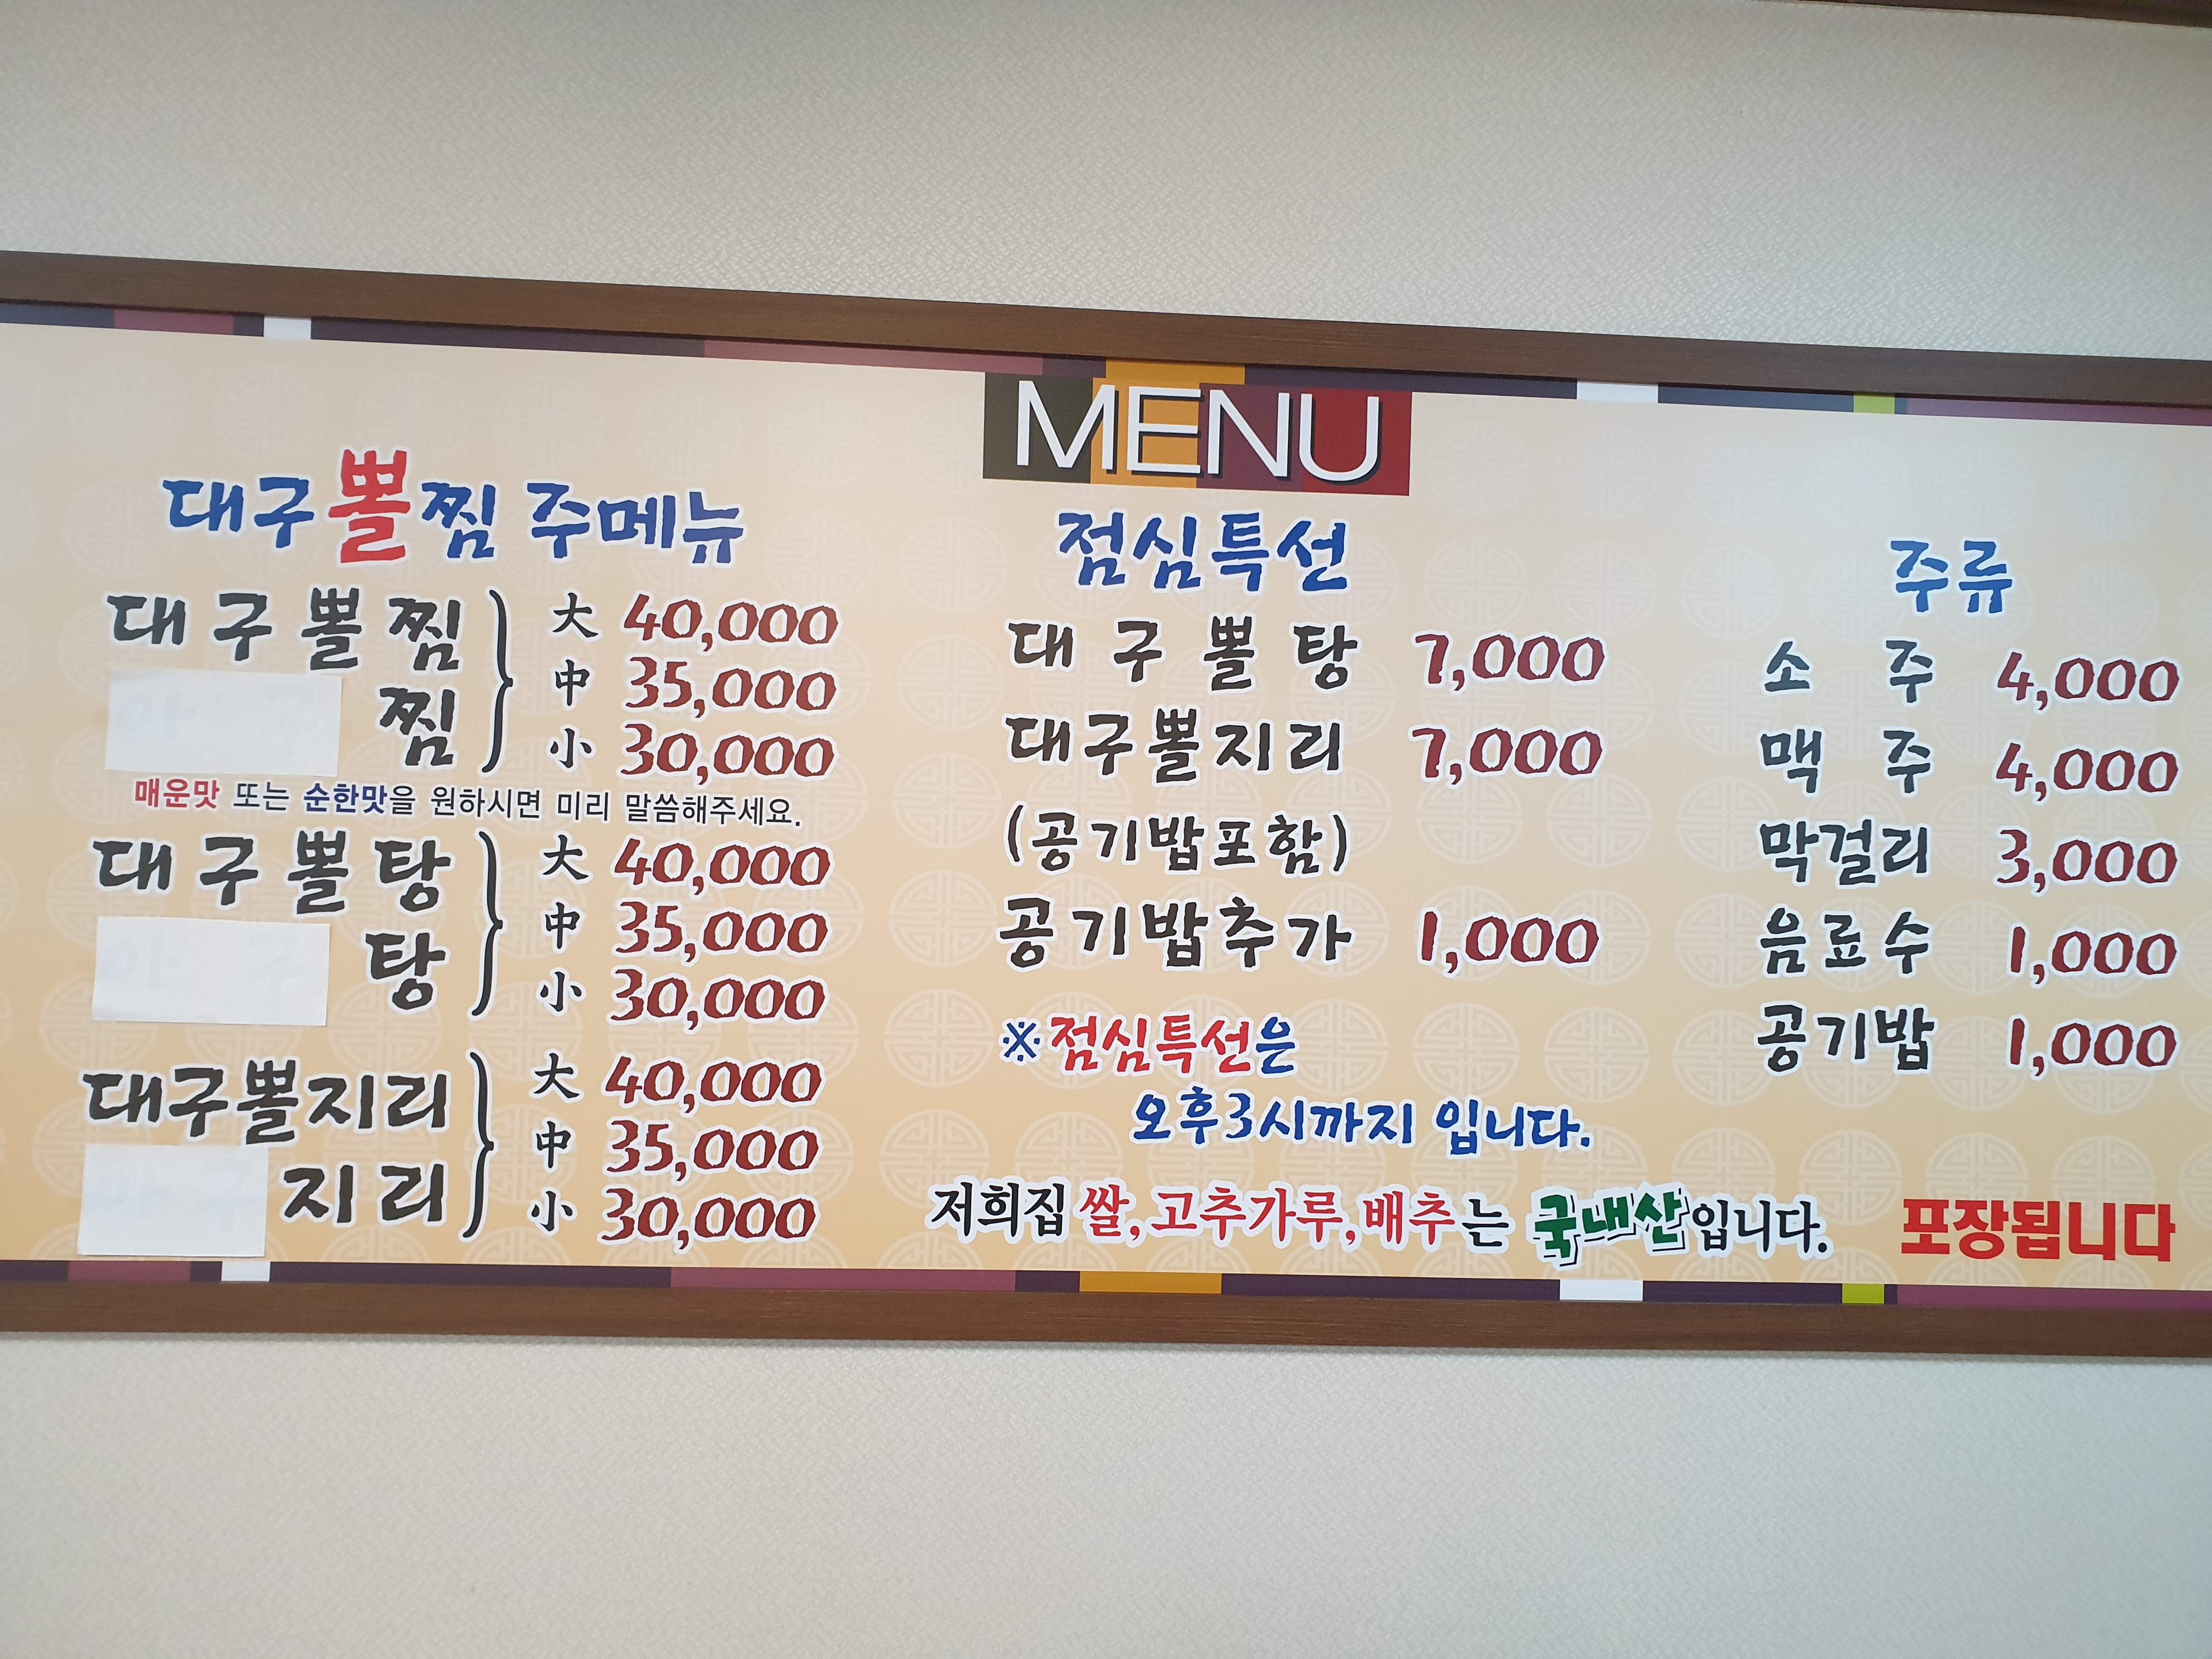 MENU
대구뽈찜 주메뉴
대구뽈찜 大 40,000
찜 中 35,000
小 30,000
매운맛 또는 순한맛을 원하시면 미리 말씀해주세요.
대구뽈탕 大 40,000
탕 中 35,000
小 30,000
대구뽈지리 大 40,000
지리 中 35,000
小 30,000
점심특선
대구뽈탕 7,000
대구뽈지리 7,000
(공기밥포함)
공기밥추가 1,000
※점심특선은
오후3시까지 입니다.
저희집 쌀,고추가루,배추는 국내산입니다.
주류
소주 4,000
맥주 4,000
막걸리 3,000
음료수 1,000
공기밥 1,000
포장됩니다